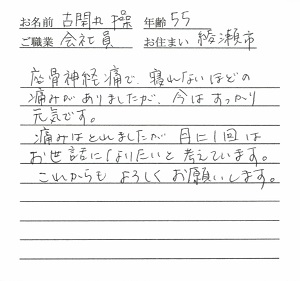 お名前 古閑丸 操 年齢 55
ご職業 会社員 お住まい 綾瀬市
座骨神経痛で、寝れないほどの
痛みがありましたが、今はすっかり
元気です。
痛みはとれましたが 月に1回は
お世話になりたいと考えています。
これからも よろしくお願いします。